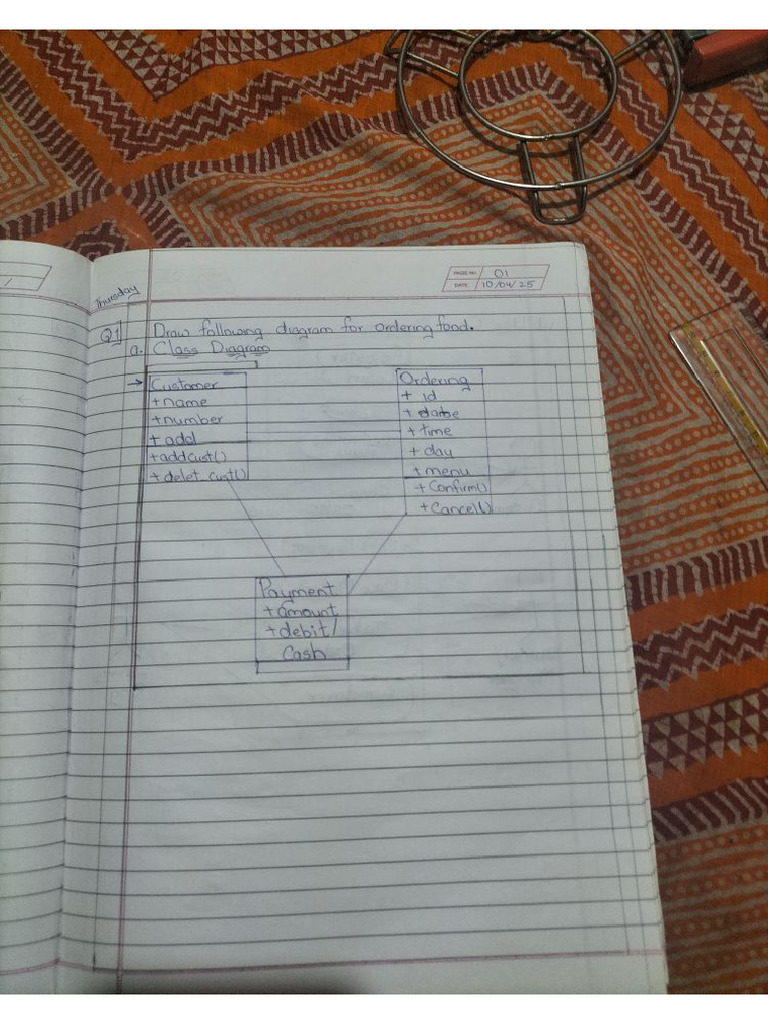 PAGE NO. 01
DATE 10/04/25
Thursday
Q1 Draw following diagram for ordering food.
a. Class Diagram
→ Customer
+ name
+ number
+ add
+ addcust()
+ delet cust()
Ordering
+ id
+ time
+ day
+ menu
+ Confirm()
+ Cancel()
Payment
+ amount
+ debit/
Cash